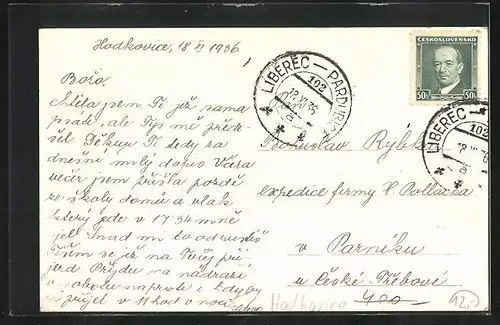 Hodkovice, 18 VI 1936
Bořo,
Chtěla jsem Ti již sama
psáti, ale Tys mě přede-
šel. Děkuji Ti tedy za
dnešní milý dopis. Včera
večer jsem přišla pozdě
ze školy domů a vlak
který jede v 17.34 mně
ujel. Snad mi to odpustíš
Těším se již na Tvůj pří-
jezd. Přijdu na nádraží
v sobotu naproti i kdyby
přijel v 11 hod v noci.
ČESKOSLOVENSKO
50h 50h
LIBEREC — PARDUBICE
102
18 VI 36
a
LIBEREC —
102
18 VI 36
a
Bohuslav Rybk
expedice firmy H. Pollacka
v Parníku
u České Třebové
400
Hodkovice
12,-